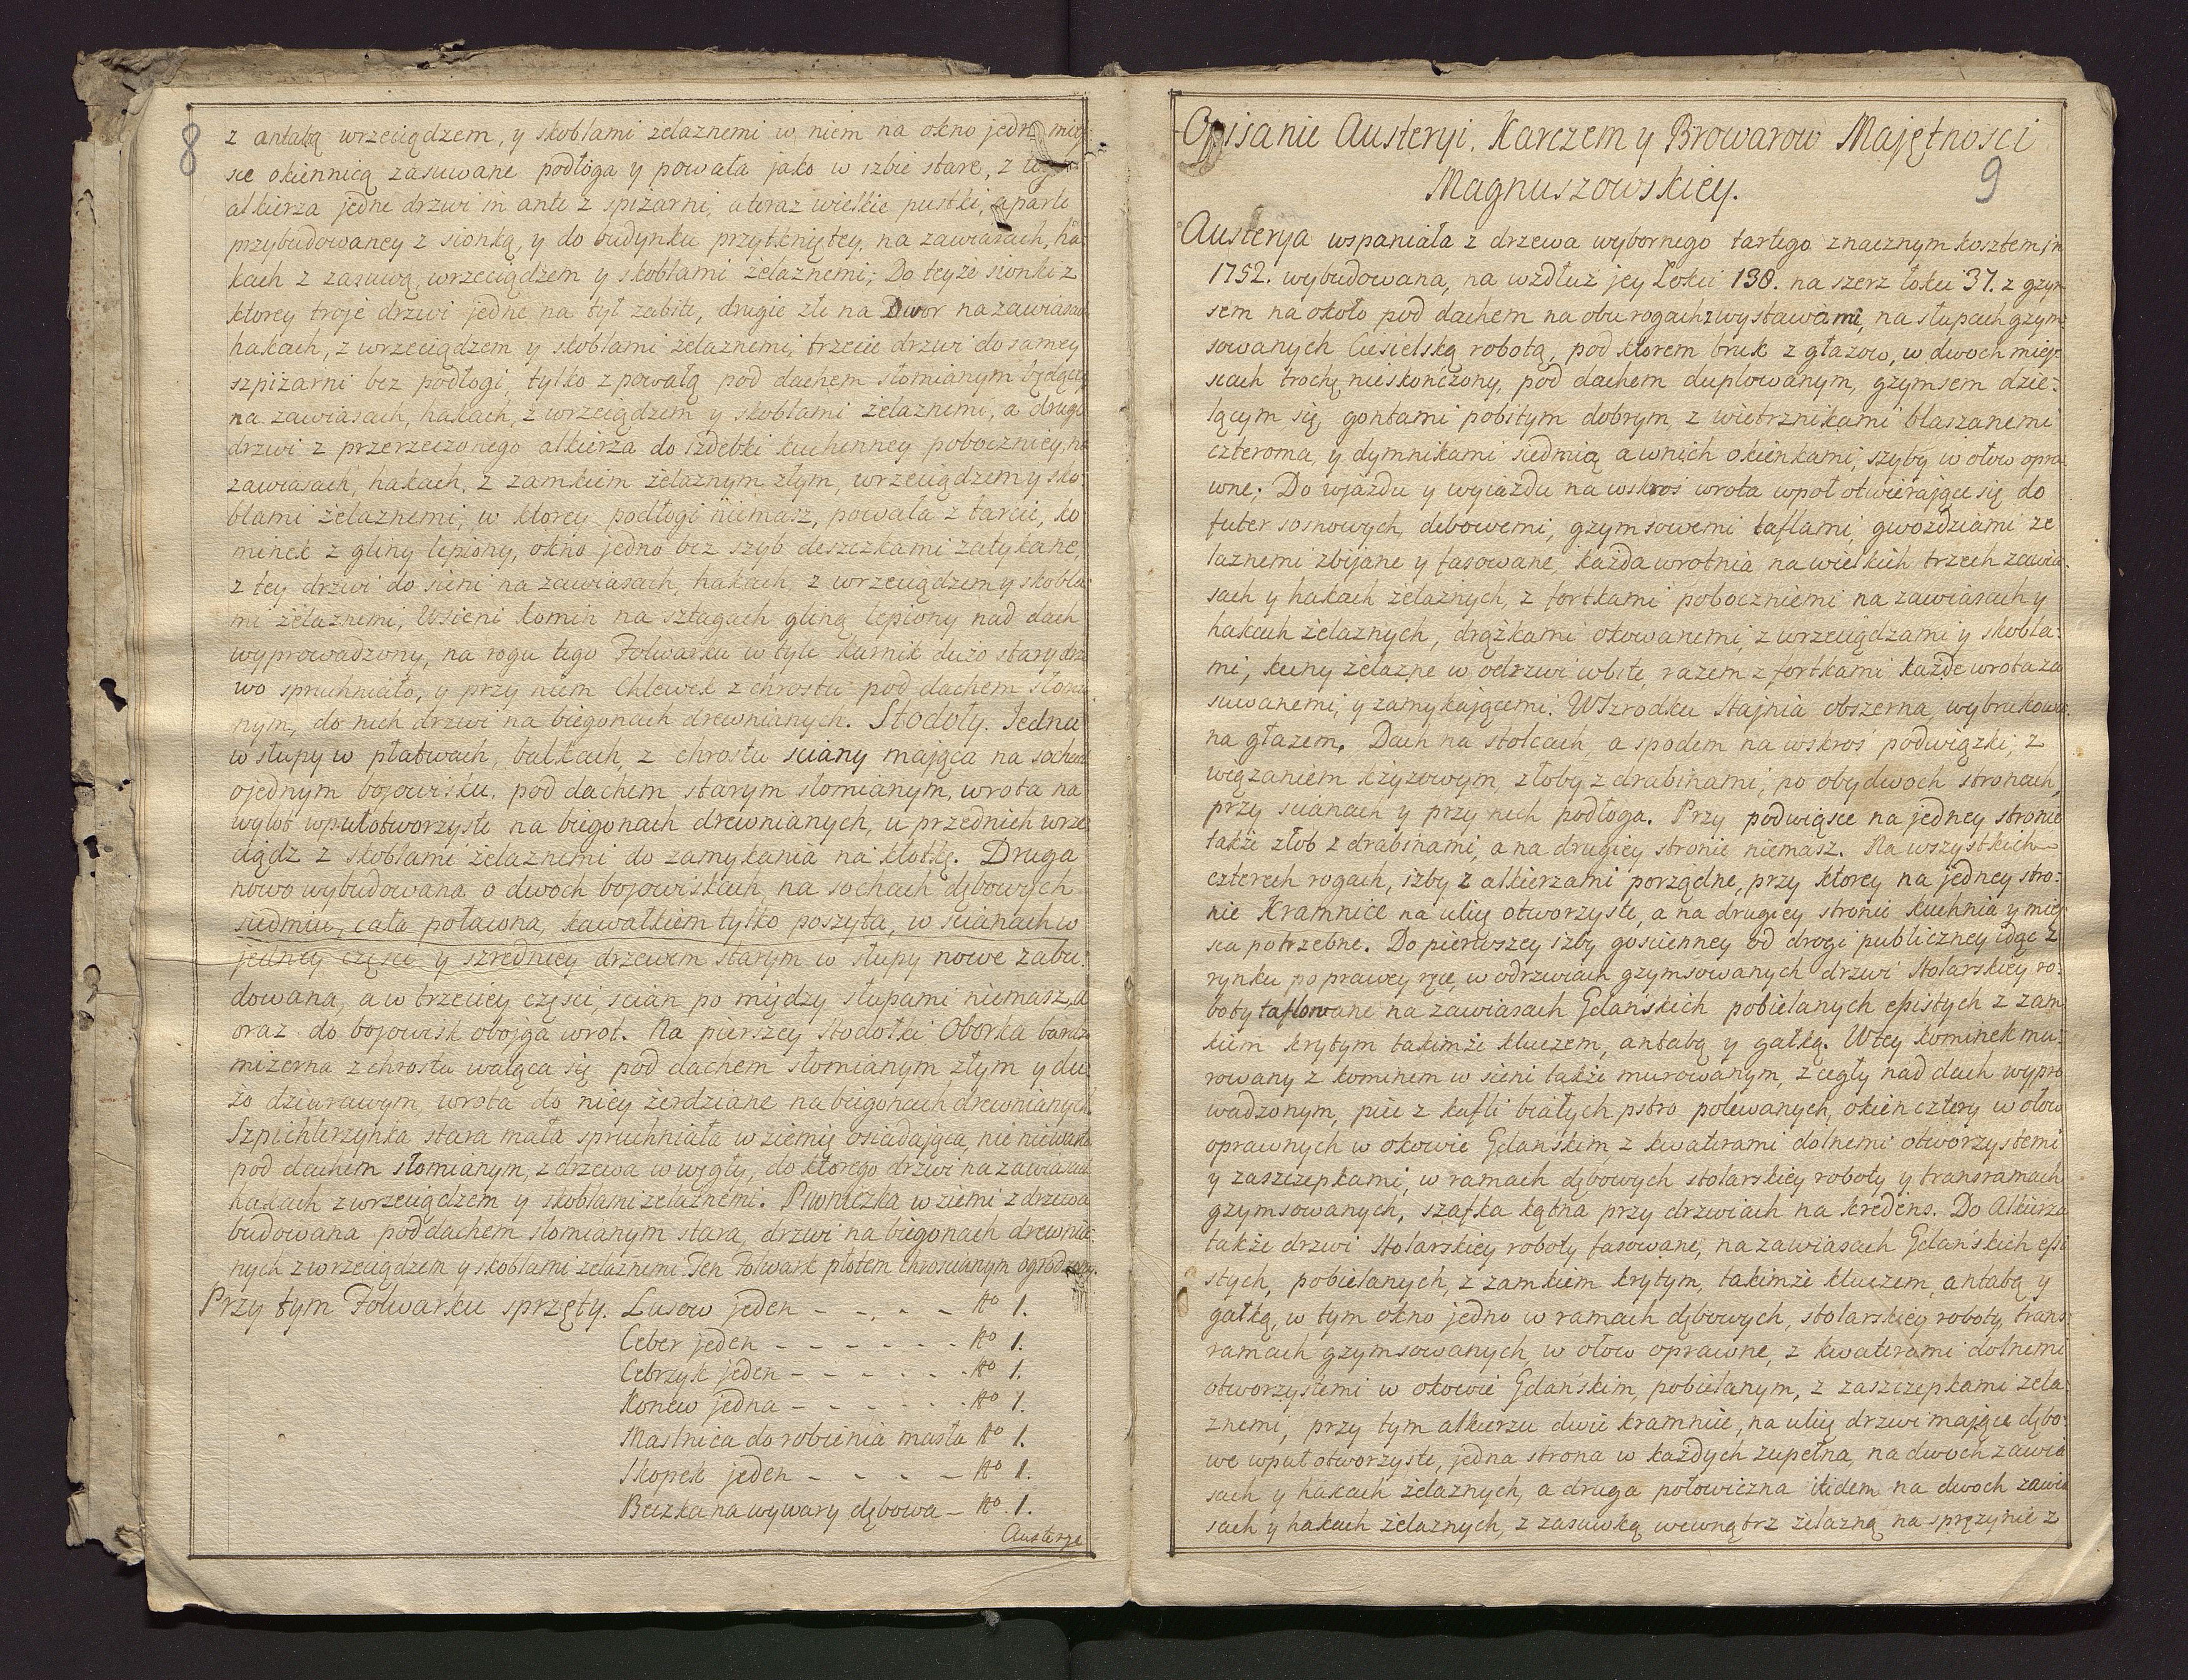 8
z antabą wrzeciądzem, y skoblami zelaznemi w niem na okno jedno miey-
sce okiennicą zasuwane podłoga y powała jako w izbie stare, z tego
alkierza jedne drzwi in ante z spiżarni, a teraz wielkie pustki, aparte
przybudowaney z sionką, y do budynku przytkniętey, na zawiasach, ha-
kach z zasuwą, wrzeciądzem y skoblami żelaznemi; Do teyże sionki z
ktorey troje drzwi jedne na tył zabite, drugie złe na Dwor na zawiasach
hakach, z wrzeciądzem y skoblami żelaznemi, trzecie drzwi do samey
szpiżarni bez podłogi, tylko z powałą pod dachem słomianym będącey
na zawiasach, hakach, z wrzeciądzem y skoblami żelaznemi, a drugie
drzwi z przerzeczonego alkierza do izdebki kuchenney poboczniey, na
zawiasach, hakach, z zamkiem żelaznym złym, wrzeciądzem y sko-
blami żelaznemi, w ktorey podłogi niemasz, powała z tarcic, ko
minek z gliny lepiony, okno jedno bez szyb deszczkami zatykane,
z tey drzwi do sieni na zawiasach, hakach, z wrzeciądzem y skobla-
mi żelaznemi, W sieni komin na sztagach gliną lepiony nad dach
wyprowadzony, na rogu tego Folwarku w tyle kurnik dużo stary drze
wo spruchniałe, y przy niem Chlewek z chrostu pod dachem słomia-
nym, do nich drzwi na biegonach drewnianych. Stodoły. Jedna
w słupy w płatwach, balkach, z chrostu sciany mająca na sochach
o jednym bojowisku, pod dachem starym słomianym, wrota na
wylot wpułotworzyste na biegonach drewnianych, u przednich wrze-
ciądz z skoblami żelaznemi do zamykania na kłotkę. Druga
nowo wybudowana o dwoch bojowiskach, na sochach dębowych
siedmiu, cała poławona, kawałkiem tylko poszyta, w scianach w
jedney częsci y szredniey drzewem starym w słupy nowe zabu-
dowana, a w trzeciey częsci, scian po między słupami niemasz, a
oraz do bojowisk obojga wrot. Na pierszey Stodołki Oborka bardzo
mizerna z chrostu waląca się pod dachem słomianym złym y du-
żo dziurawym, wrota do niey żerdziane na biegonach drewnianych.
Szpichlerzynka stara mała spruchniała w ziemię osiadająca, nic niewarta
pod dachem słomianym, z drzewa w węgły, do ktorego drzwi na zawiasach
hakach z wrzeciądzem y skoblami zelaznemi. Piwniczka w ziemi z drzewa
budowana pod dachem słomianym stara, drzwi na biegonach drewnia-
nych z wrzeciądzem y skoblami zelaznemi. Ten Folwark płotem chroscianym ogrodzony.
Przy tym Folwarku sprzęty. Lusow jeden - - - - No 1.
Ceber jeden - - - - - - No 1.
Cebrzyk jeden - - - - - No 1.
Konew jedna - - - - - - No 1.
Mastnica do robienia masła No 1.
Skopek jeden - - - - No 1.
Beczka na wywary dębowa - No. 1.
Austerya
Opisanie Austeryi, Karczem y Browarow Majętnosci
Magnuszowskiey.
9
Austerya wspaniała z drzewa wybornego tartego znacznym kosztem, in
1752. wybudowana, na wzdłuż jey Łokci 138. na szerz łokci 37. z gzym
sem na około pod dachem na obu rogach z wystawami, na słupach gzym-
sowanych Ciesielską robotą, pod ktorem bruk z głazow, w dwoch miey-
scach trochę nieskończony, pod dachem duplowanym, gzymsem dzie-
lącym się, gontami pobitym dobrym, z wietrznikami blaszanemi
czteroma, y dymnikami siedmią a w nich okienkami, szyby w ołow opra-
wne; Do wjazdu y wyiazdu na wskroś wrota wpoł otwierające się do
futer sosnowych, dębowemi, gzymsowemi taflami, gwoździami że
laznemi zbijane y fasowane, każda wrotnia na wielkich trzech zawia-
sach y hakach żelaznych, z fortkami poboczniemi na zawiasach y
hakach żelaznych, drążkami okowanemi, z wrzeciądzami y skobla-
mi, kuny żelazne w odrzwi wbite, razem z fortkami każde wrota za
suwanemi, y zamykającemi. W szrodku Stajnia obszerna, wybrukowa-
na głazem. Dach na stolcach, a spodem na wskroś podwiązki, z
wiązaniem krzyzowym, złoby z drabinami, po obydwoch stronach,
przy scianach y przy nich podłoga. Przy podwiąsce na jedney stronie
także złob z drabinami, a na drugiey stronie niemasz. Na wszystkich
czterech rogach, izby z alkierzami porządne, przy ktorey na jedney stro-
nie Kramnice na ulię otworzyste, a na drugiey stronie kuchnia y miey-
sca potrzebne. Do pierwszey izby gościnney od drogi publiczney idąc z
rynku po prawey ręce, w odrzwiach gzymsowanych drzwi Stolarskiey ro-
boty taflowane na zawiasach Gdańskich pobielanych essistych z zam-
kiem krytym takimże kluczem, antabą y gałką. W tey kominek mu-
rowany z kominem w sieni także murowanym, z cegły nad dach wypro-
wadzonym, piec z kafli białych pstro polewanych, okien cztery w ołow
oprawnych w okowie Gdańskim z kwaterami dolnemi otworzystemi
y zaszczepkami, w ramach dębowych stolarskiey roboty y transramach
gzymsowanych, szafka kątna przy drzwiach na kredens. Do Alkierza
także drzwi Stolarskiey roboty fasowane, na zawiasach Gdańskich essi-
stych, pobielanych, z zamkiem krytym, takimże kluczem, antabą y
gałką, w tym okno jedno w ramach dębowych, stolarskiey roboty, trans-
ramach gzymsowanych w ołow oprawne, z kwaterami dolnemi
otworzystemi w okowie Gdańskim, pobielanym, z zaszczepkami zela-
znemi, przy tym alkierzu dwie kramnice, na ulię drzwi mające dębo-
we wpuł otworzyste, jedna strona w każdych zupełna, na dwoch zawia-
sach y hakach żelaznych, a druga połowiczna itidem na dwoch zawia-
sach y hakach żelaznych, z zasuwką wewnątrz żelazną na sprężynie z